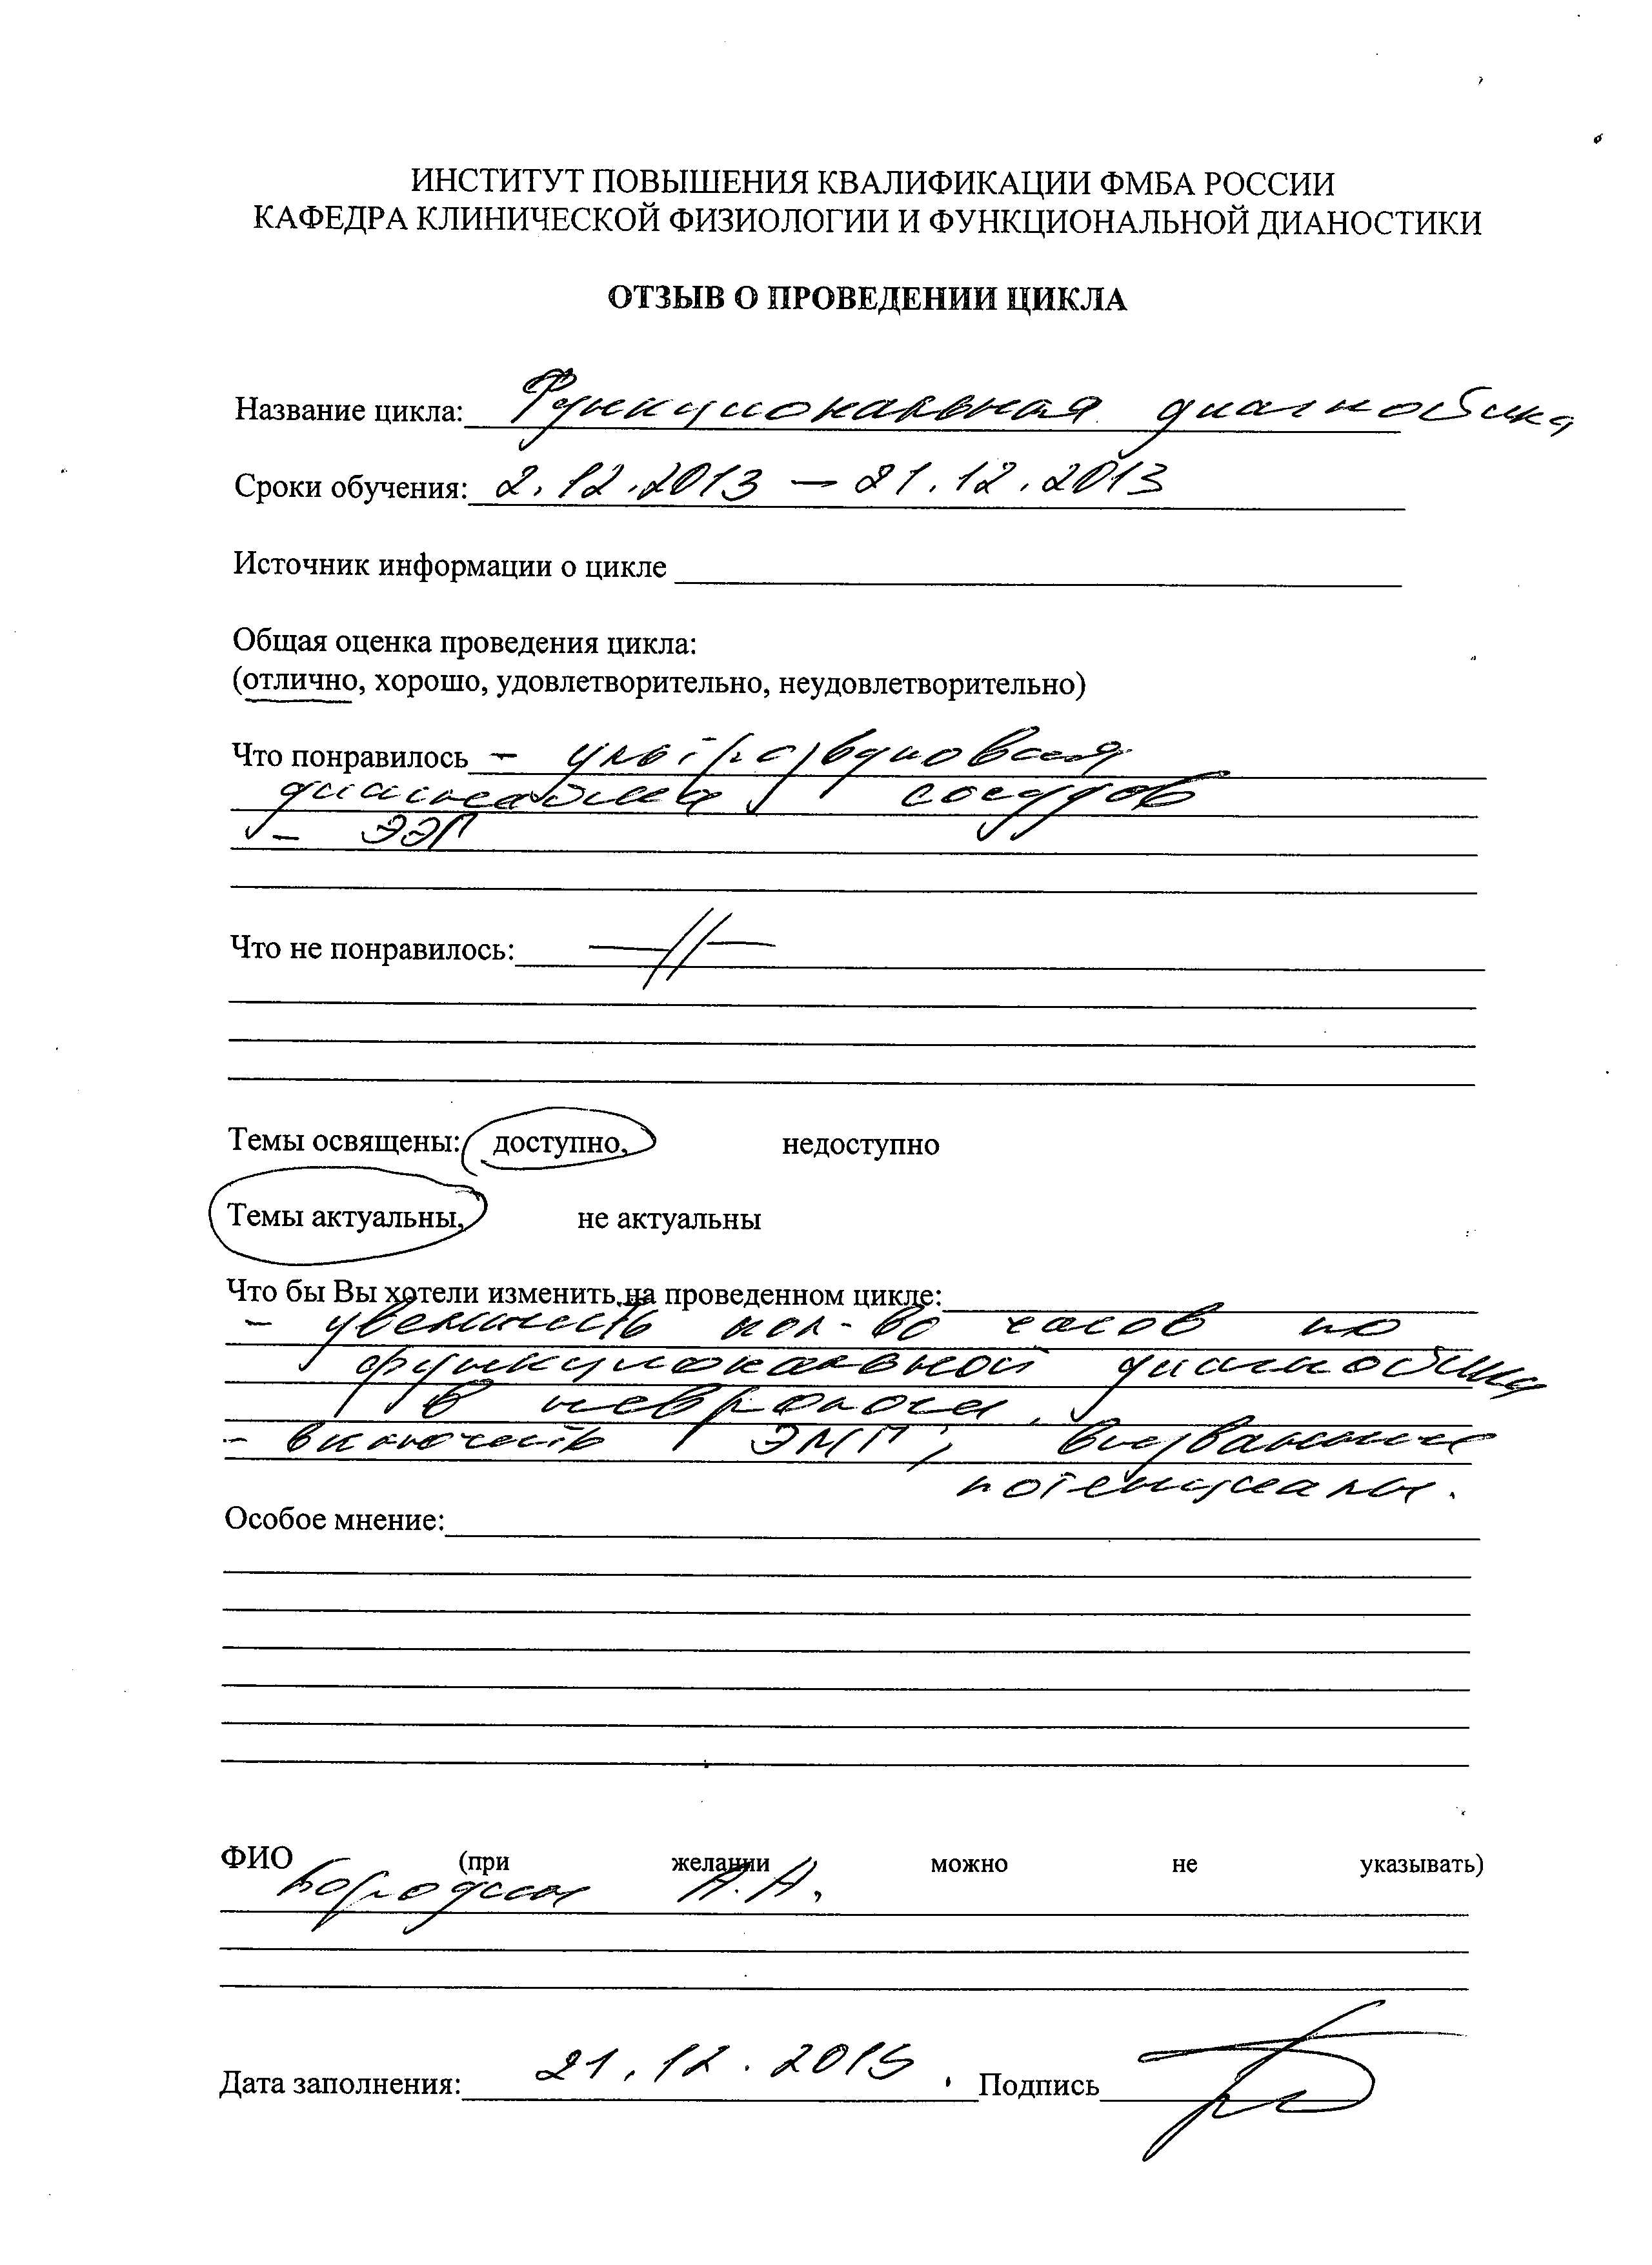 ИНСТИТУТ ПОВЫШЕНИЯ КВАЛИФИКАЦИИ ФМБА РОССИИ
КАФЕДРА КЛИНИЧЕСКОЙ ФИЗИОЛОГИИ И ФУНКЦИОНАЛЬНОЙ ДИАНОСТИКИ
ОТЗЫВ О ПРОВЕДЕНИИ ЦИКЛА
Название цикла: Функциональная диагностика
Сроки обучения: 2.12.2013 — 21.12.2013
Источник информации о цикле
Общая оценка проведения цикла:
(отлично, хорошо, удовлетворительно, неудовлетворительно)
Что понравилось - ультразвуковая
диагностика сосудов
- ЭЭГ
Что не понравилось: —//—
Темы освящены: доступно, недоступно
Темы актуальны, не актуальны
Что бы Вы хотели изменить на проведенном цикле:
- увеличить кол-во часов по
функциональной диагностике
в неврологии.
- включить ЭМГ, вызванные
потенциалы.
Особое мнение:
ФИО (при желании можно не указывать)
А.А.
Дата заполнения: 21.12.2013. Подпись